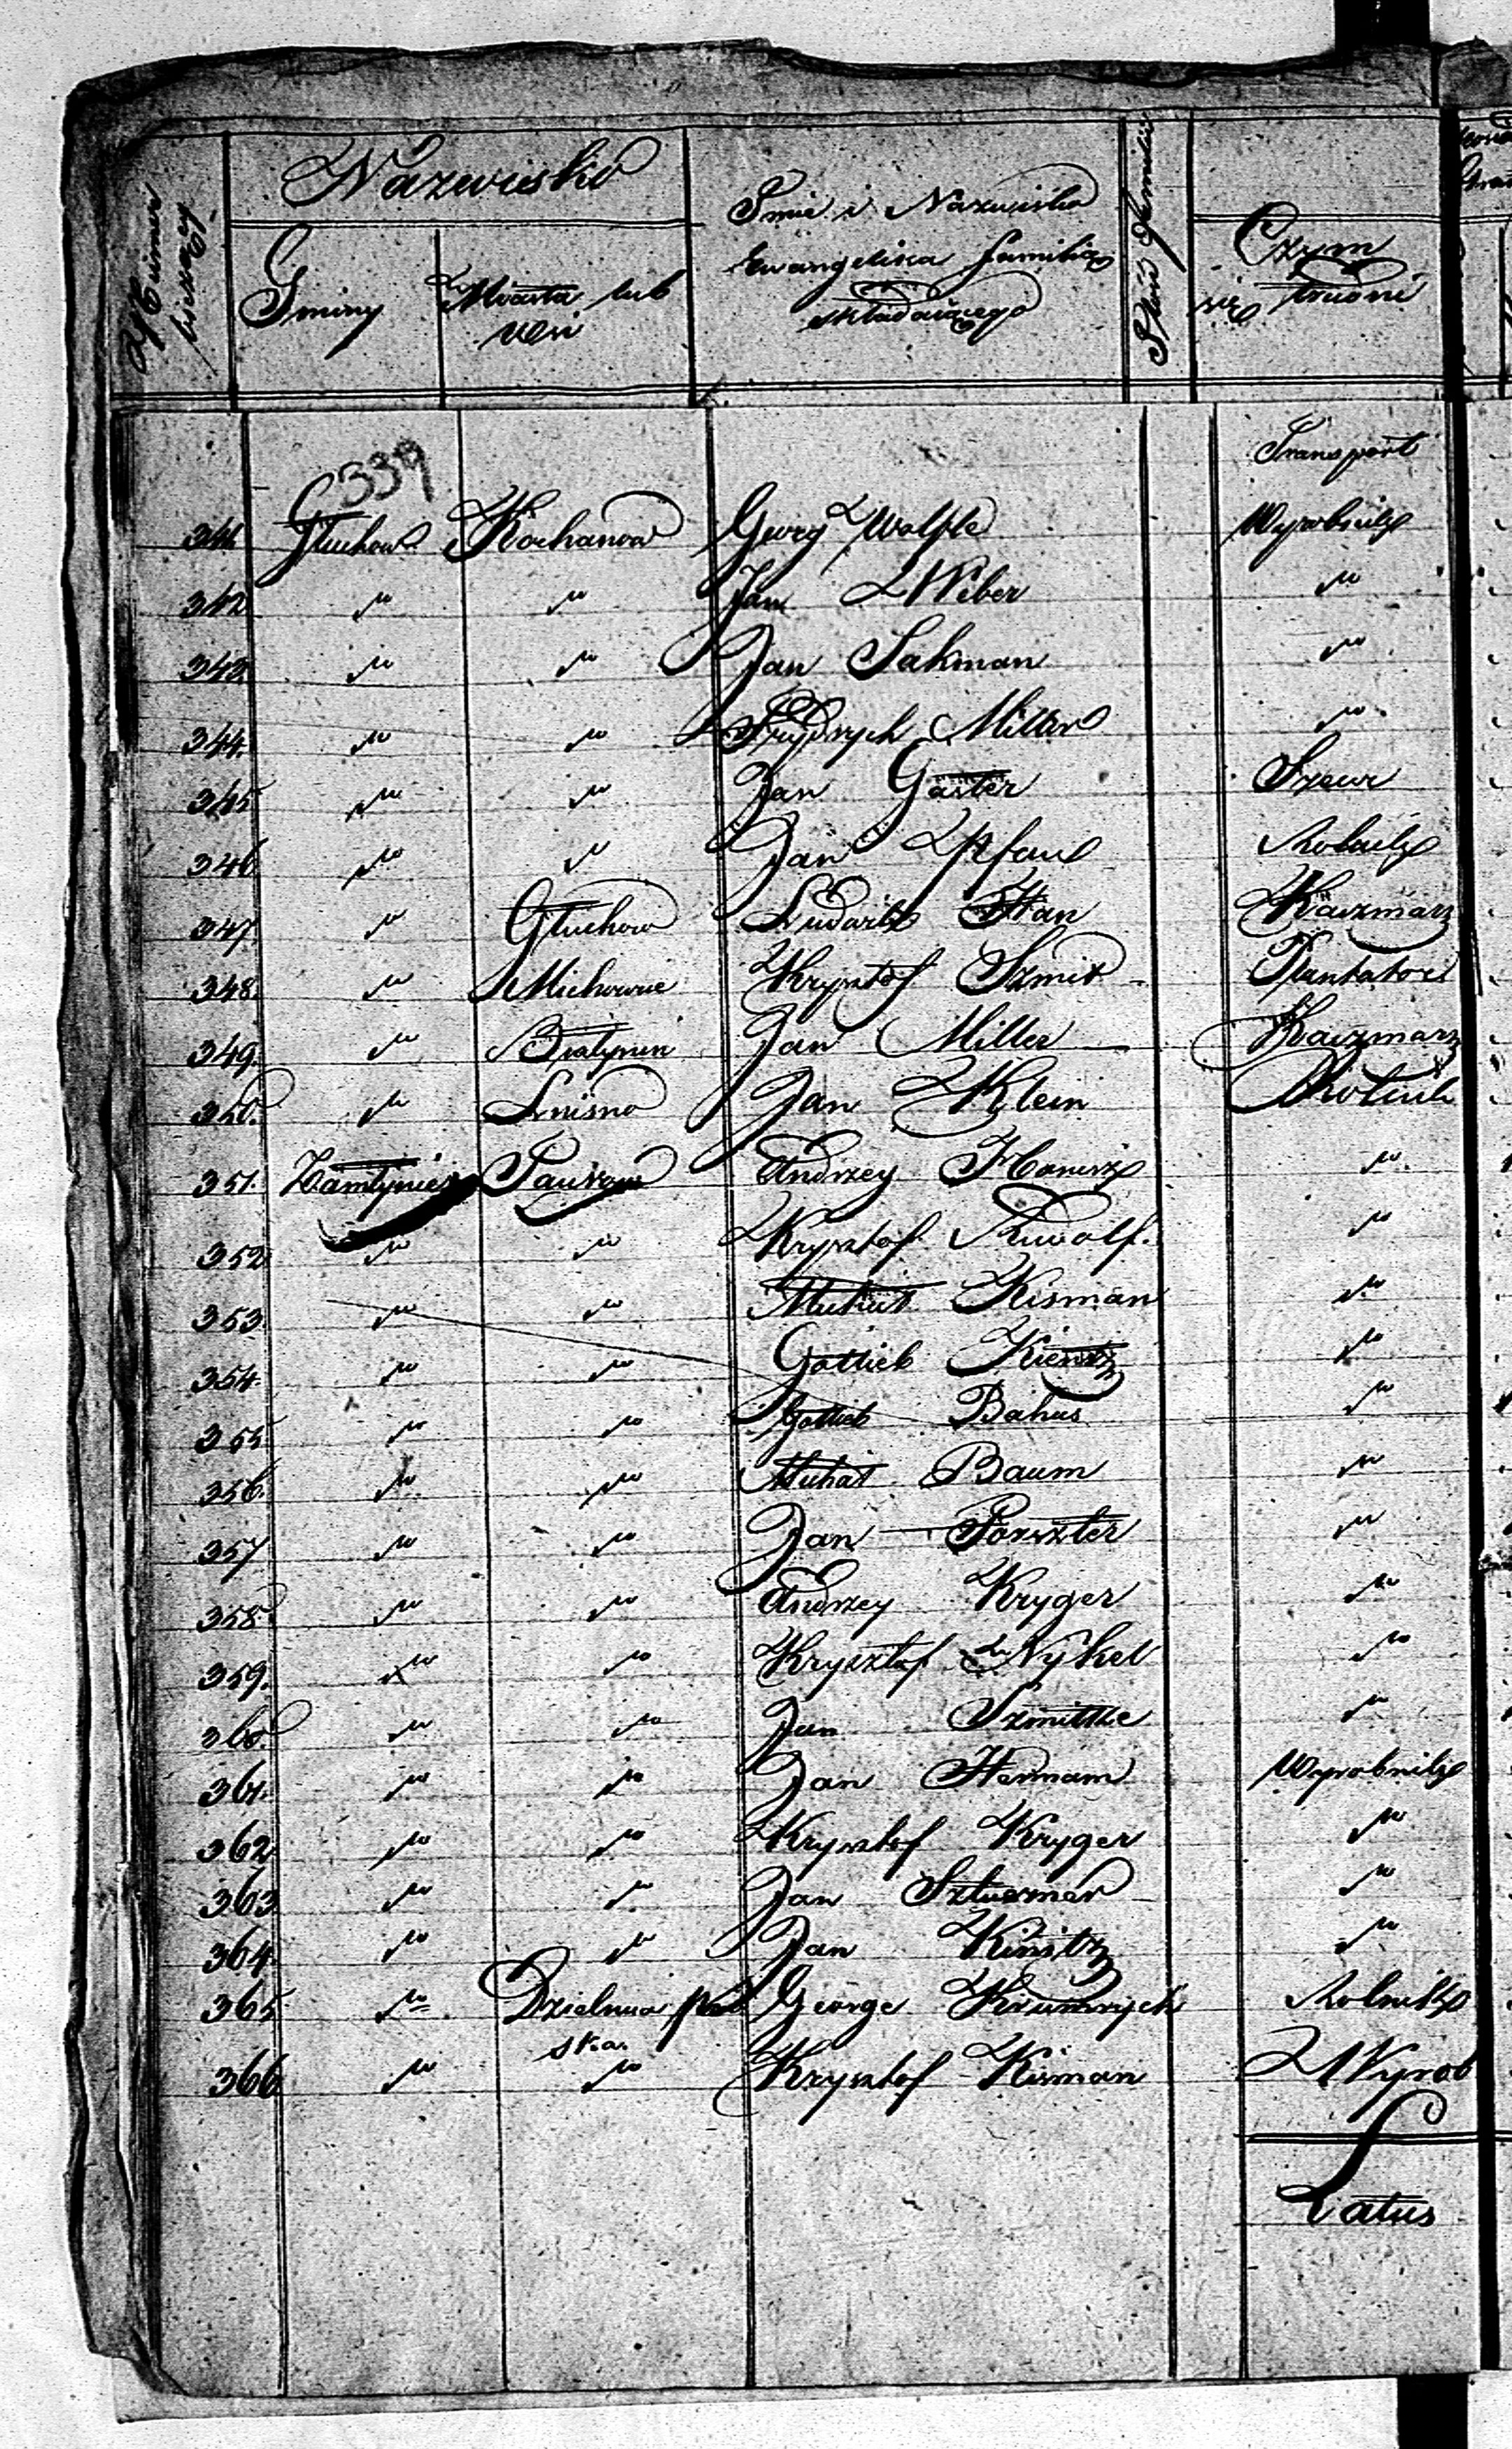 Numer bieżący
Nazwisko
Gminy
Miasta lub
wsi
Imie i Nazwisko
Ewangelika familią
składaiącego
Czym
się trudni
Transport
339
341. Głuchow Kochanow Georg Wolfle Wyrobnik
342 " " Jan Weber "
343. " " Jan Sakman "
344. " " Frydrych Miller "
345 " " Jan Gaster Szewc
346 " " Jan Pfaul Rolnik
347. " Głuchow Ludwik Han Kaczmarz
348. " Michowice Krysztof Szmit Plantator
349. " Białynin Jan Miller Kaczmarz
350. " Lnisno Jan Klein Rolnik
351. Andrzey "
352 " " Krysztof Rudolf. "
353 " " Michał Kisman "
354. " " Gottlieb Kienitz "
355 " " Gottlieb Bahus "
356. " " Michał Baum "
357 " " Jan Forszter "
358 " " Andrzey Kryger "
359. " " Krysztof Nykel "
360. " " Jan Szmittke "
361. " " Jan Hermam Wyrobnik
362 " " Krysztof Kryger "
363 " " Jan Szturmer "
364. " " Jan Kinitz "
365 " Dzielnica George Krumrych Rolnik
ska.
366 " " Krysztof Kisman Wyrob
Latus